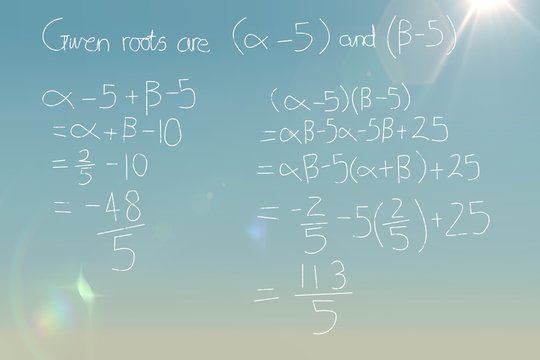 Given roots are (α-5) and (β-5)
α-5+β-5
=α+β-10
=2/5-10
=-48/5
(α-5)(β-5)
=αβ-5α-5β+25
=αβ-5(α+β)+25
=-2/5-5(2/5)+25
=113/5